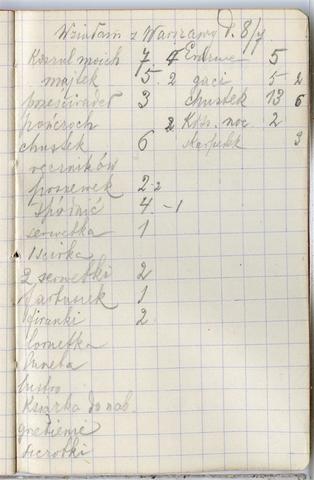 Wzięłam z Warszawy d. 8/V
Koszul moich 7 4 Endrine 5
majtek 5 2 gaci 5 2
prześcieradeł 3 chustek 13 6
pończoch 2 Kosz. noc. 2
chustek 6 skarpetek 3
ręczników
poszewek 2 2
spódnic 4 -1
serwetka 1
1 ścirka
2 serwetki 2
fartuszek 1
firanki 2
lornetka
lustro
Książka do nab.
grzebienie